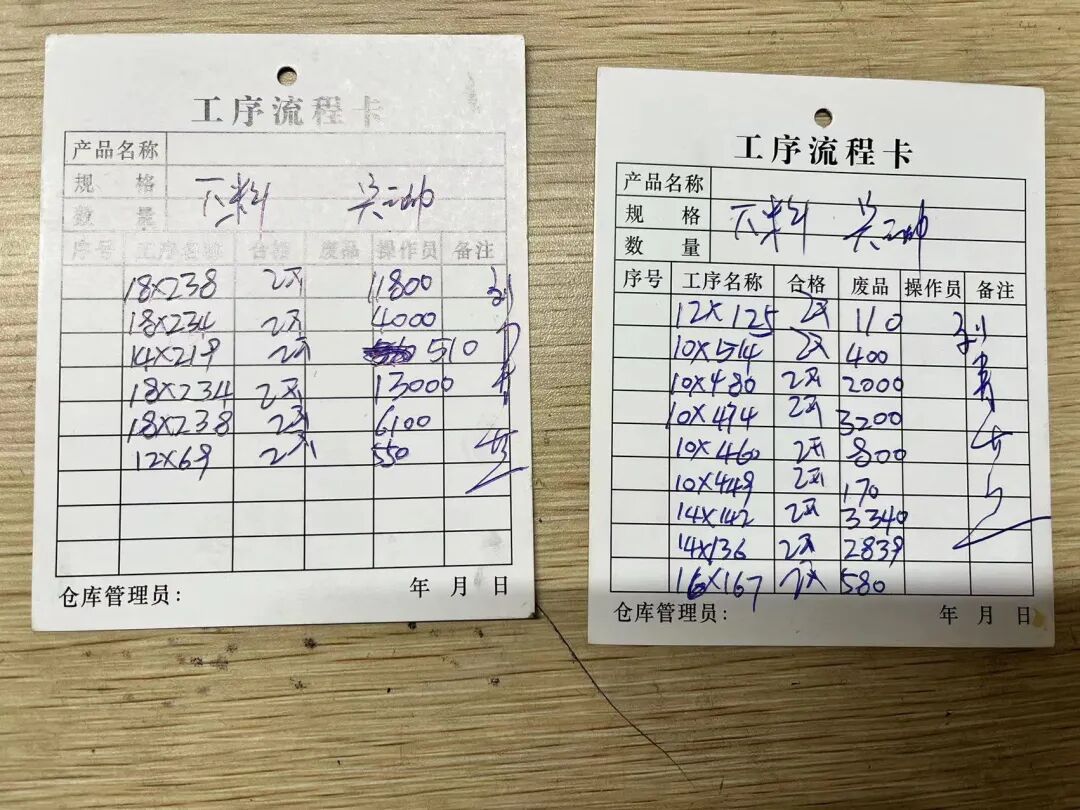 工序流程卡
产品名称
规 格 下料
数 量
序号 工序名称 合格 废品 操作员 备注
18×238 2万 11800
18×234 2万 4000
14×219 2万 510
18×234 2万 13000
18×238 2万 6100
12×69 2万 550
仓库管理员: 年 月 日
工序流程卡
产品名称
规 格 下料
数 量
序号 工序名称 合格 废品 操作员 备注
12×125 2万 110
10×514 2万 400
10×480 2万 2000
10×474 2万 3200
10×460 2万 800
10×449 2万 170
14×142 2万 3340
14×136 2万 2839
16×167 2万 580
仓库管理员: 年 月 日